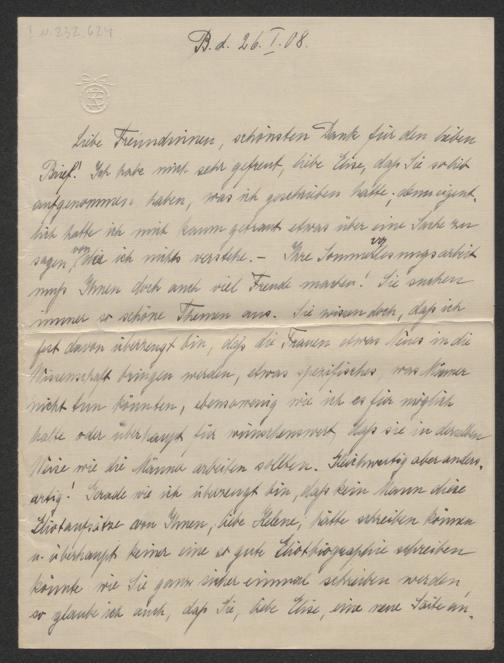 I.N. 232.624
B. d. 26. I. 08.
Liebe Freundinnen, schönsten Dank für den lieben
Brief! Ich habe mich sehr gefreut, liebe Elise, daß Sie so lieb
aufgenommen haben, was ich geschrieben hatte, denn eigent-
lich hatte ich mich kaum getraut etwas über eine Sache zu
sagen, von der ich nichts verstehe. – Ihre Vorlesungsarbeit
muß Ihnen doch auch viel Freude machen! Sie suchen
immer so schöne Themen aus. Sie wissen doch, daß ich
fest davon überzeugt bin, daß die Frauen etwas Neues in die
Wissenschaft bringen werden, etwas spezifisches, was Männer
nicht tun könnten, ebensowenig wie ich es für möglich
halte oder überhaupt für wünschenswert, daß sie in derselben
Weise wie die Männer arbeiten sollten. Gleichwertig aber anders-
artig! Gerade wie ich überzeugt bin, daß kein Mann diese
Eliotaufsätze von Ihnen, liebe Helene, hätte schreiben können
u. überhaupt keiner eine so gute Eliotbiographie schreiben
könnte wie Sie ganz sicher einmal schreiben werden,
so glaube ich auch, daß Sie, liebe Elise, eine neue Saite an-